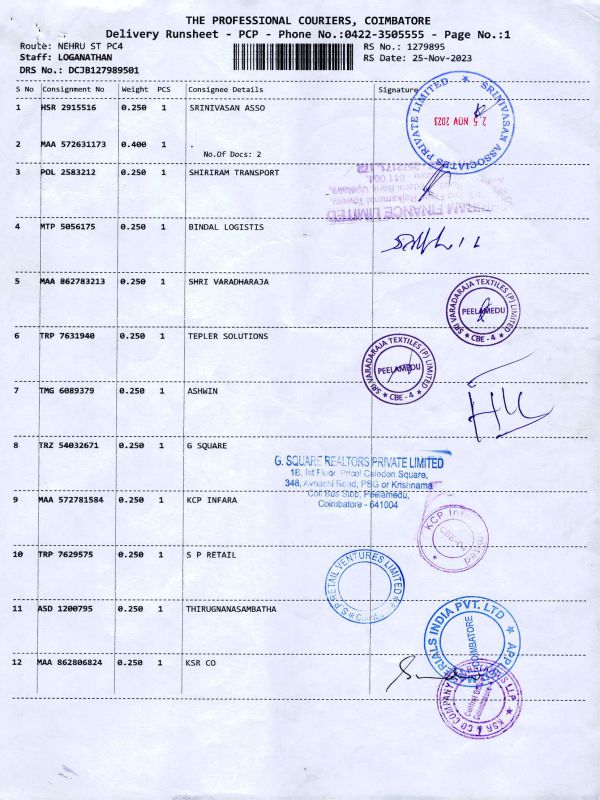 THE PROFESSIONAL COURIERS, COIMBATORE
Delivery Runsheet - PCP - Phone No.:0422-3505555 - Page No.:1
Route: NEHRU ST PC4
RS No.: 1279895
Staff: LOGANATHAN
RS Date: 25-Nov-2023
DRS No.: DCJB127989501
S No Consignment No Weight PCS Consignee Details Signature
1 HSR 2915516 0.250 1 SRINIVASAN ASSO
SRINIVASAN ASSOCIATES PRIVATE LIMITED ★
25 NOV 2023
2 MAA 572631173 0.400 1 .
No.Of Docs: 2
3 POL 2583212 0.250 1 SHIRIRAM TRANSPORT
FINANCE LIMITED
4 MTP 5056175 0.250 1 BINDAL LOGISTIS
5 MAA 862783213 0.250 1 SHRI VARADHARAJA
SRI VARADARAJA TEXTILES (P) LIMITED
PEELAMEDU
★ CBE - 4 ★
6 TRP 7631940 0.250 1 TEPLER SOLUTIONS
SRI VARADARAJA TEXTILES (P) LIMITED
PEELAMEDU
★ CBE - 4 ★
7 TMG 6089379 0.250 1 ASHWIN
8 TRZ 54032671 0.250 1 G SQUARE
G. SQUARE REALTORS PRIVATE LIMITED
1B, Ist Floor, Caledon Square,
348, Avnashi Road, PSG or Krishnama
Coil Bus Stop, Peelamedu,
Coimbatore - 641004
9 MAA 572781584 0.250 1 KCP INFARA
KCP
10 TRP 7629575 0.250 1 S P RETAIL
S P RETAIL VENTURES LIMITED
11 ASD 1200795 0.250 1 THIRUGNANASAMBATHA
INDIA PVT. LTD ★
COIMBATORE
12 MAA 862806824 0.250 1 KSR CO
KSR & CO COMPANY LLP